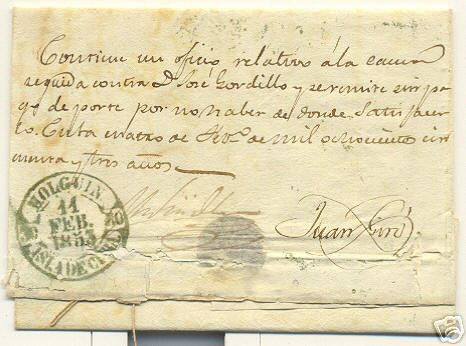 Contiene un oficio relativo á la causa
seguida contra D. José Gordillo y se remite sin pa
go de porte por no haber de donde satisfacer
lo. Cuba cuatro de Feb.o de mil ochociento cin
cuenta y tres años
HOLGUIN
11
FEB.
1853
ISLA DE CUBA
Juan